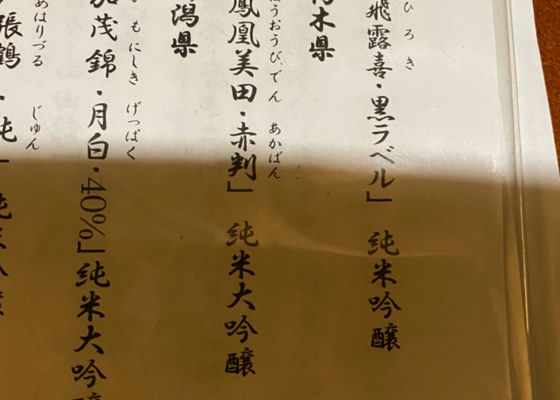 ひろき
飛露喜・黒ラベル」 純米吟醸
木県
ほうおうびでん あかばん
鳳凰美田・赤判」 純米大吟醸
潟県
もにしき げっぱく
加茂錦・月白・40%」純米大吟醸
あはりづる じゅん
張鶴・純」純米吟醸